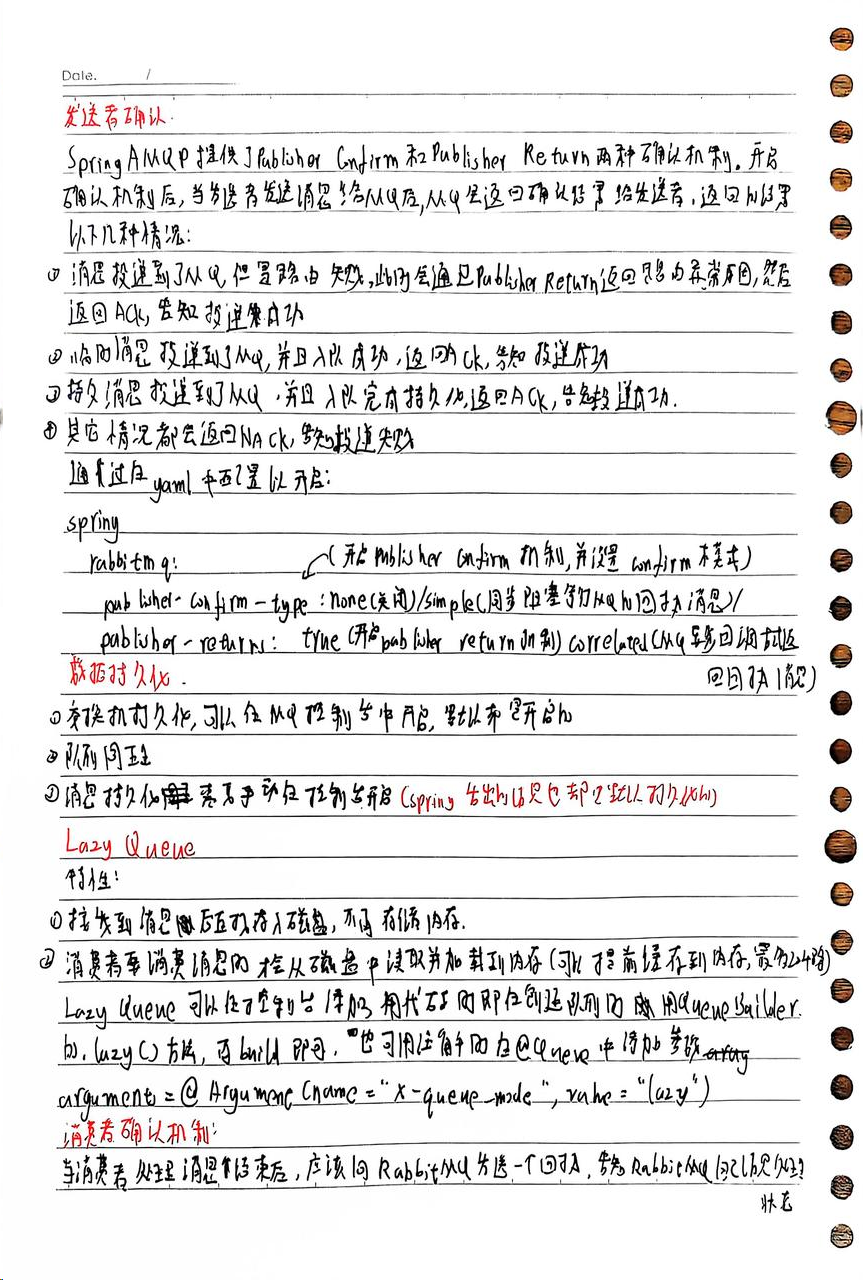 Date. /
发送者确认.
Spring AMQP 提供了Publisher Confirm 和Publisher Return 两种确认机制。开启
确认机制后,当发送者发送消息给MQ后,MQ会返回确认结果给发送者。返回的结果
以下几种情况:
① 消息投递到了MQ,但是路由失败,此时会通过Publisher Return返回路由异常原因,然后
返回ACK,告知投递成功
② 临时消息投递到了MQ,并且入队成功,返回ACK,告知投递成功
③ 持久消息投递到了MQ,并且入队完成持久化,返回ACK,告知投递成功.
④ 其它情况都会返回NACK,告知投递失败
通过在yaml中配置以开启:
spring
rabbitmq:
(开启publisher confirm 机制,并设置 confirm 模式)
publisher-confirm-type:none(关闭)/simple(同步阻塞等待MQ的回执消息)/
publisher-returns: true (开启publisher return机制) correlated(MQ异步回调方式返
回回执消息)
数据持久化.
① 交换机持久化,可以在MQ控制台中开启,默认都是开启的
② 队列同上
③ 消息持久化 需要手动在控制台开启(spring 发出的消息也都是默认持久化的)
Lazy Queue
特性:
① 接收到消息后直接存入磁盘,不再存储内存.
② 消费者要消费消息时才会从磁盘中读取并加载到内存(可以提前缓存到内存,最多2048条)
Lazy Queue 可以在控制台添加 用代码时即在创建队列时 用QueueBuilder.
的.lazy()方法,再build 即可,也可用注解时在@Queue中添加参数
argument = @Argument(name="x-queue-mode", value="lazy")
消费者确认机制:
当消费者处理消息结束后,应该向RabbitMQ发送一个回执,告知RabbitMQ自己消息处理
状态